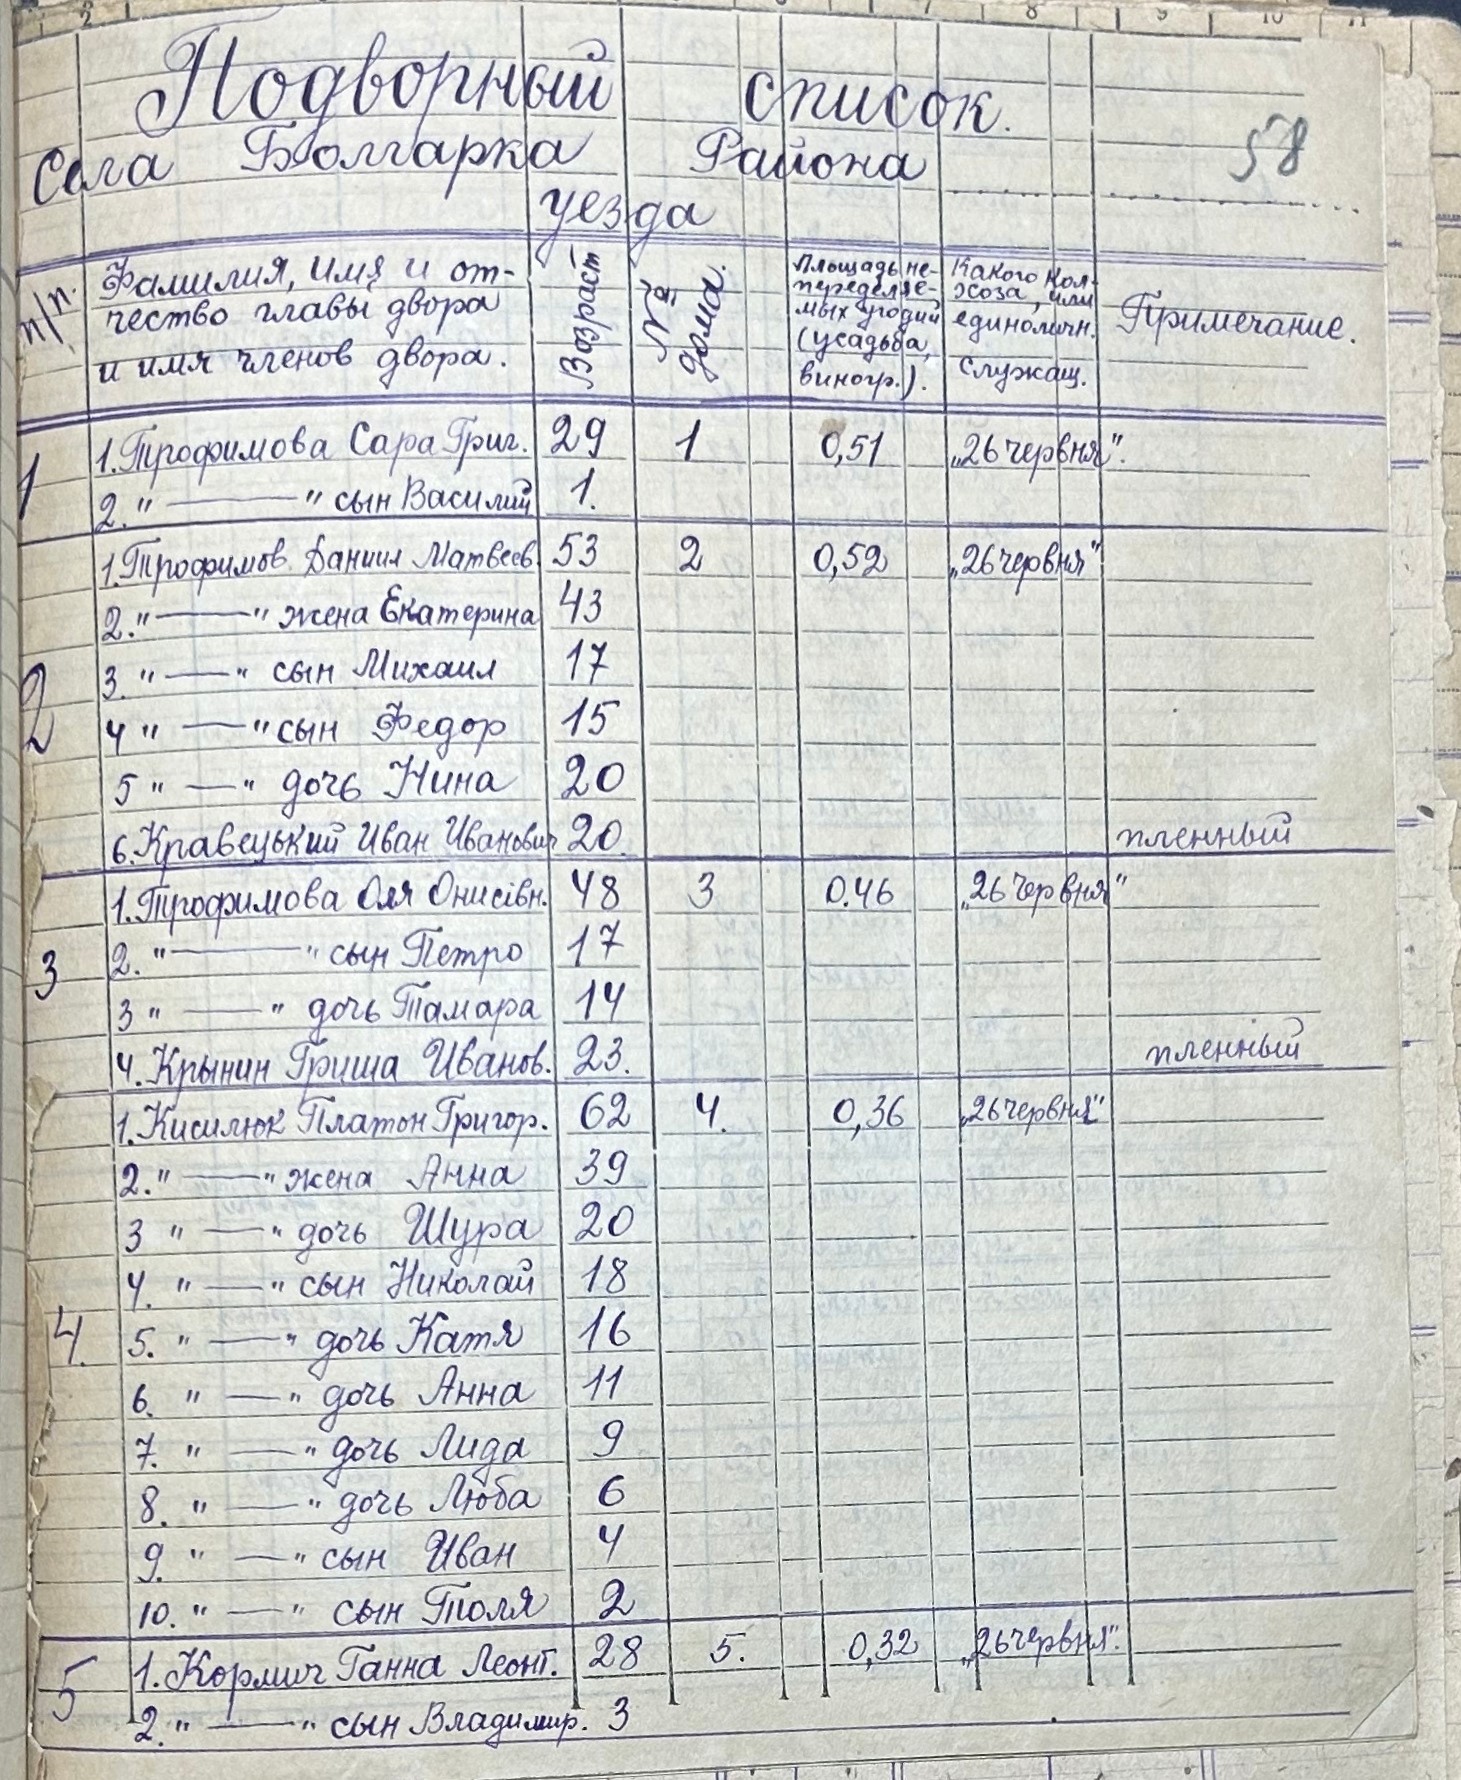 Подворный список.
58
Села Болгарка Района
уезда
п/п.
Фамилия, имя и от-
чество главы двора
и имя членов двора.
Возраст
№ дома.
Площадь не-
переделяе-
мых угодий
(усадьба,
виногр.).
Какого кол-
хоза, или
единоличн.
служащ.
Примечание.
1 1. Трофимова Сара Григ. 29 1 0,51 „26 червня".
2. " —— " сын Василий 1.
2 1. Трофимов Даниил Матвеев. 53 2 0,52 „26 червня"
2. " —— " жена Екатерина 43
3. " —— " сын Михаил 17
4 " —— " сын Федор 15
5 " —— " дочь Нина 20
6. Кравецький Иван Иванович 20. пленный
3 1. Трофимова Оля Онисівн. 48 3 0.46 „26 червня"
2. " —— " сын Петро 17
3 " —— " дочь Тамара 14
4. Крынин Гриша Иванов. 23. пленный
4. 1. Кисилюк Платон Григор. 62 4. 0,36 „26 червня"
2. " —— " жена Анна 39
3 " —— " дочь Шура 20
4. " —— " сын Николай 18
5. " —— " дочь Катя 16
6. " —— " дочь Анна 11
7. " —— " дочь Лида 9
8. " —— " дочь Люба 6
9. " —— " сын Иван 4
10. " —— " сын Толя 2
5 1. Кормич Ганна Леонт. 28 5. 0,32 „26 червня".
2. " —— " сын Владимир. 3